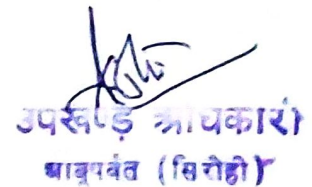 उपखण्ड अधिकारी
आबूपर्वत (सिरोही)